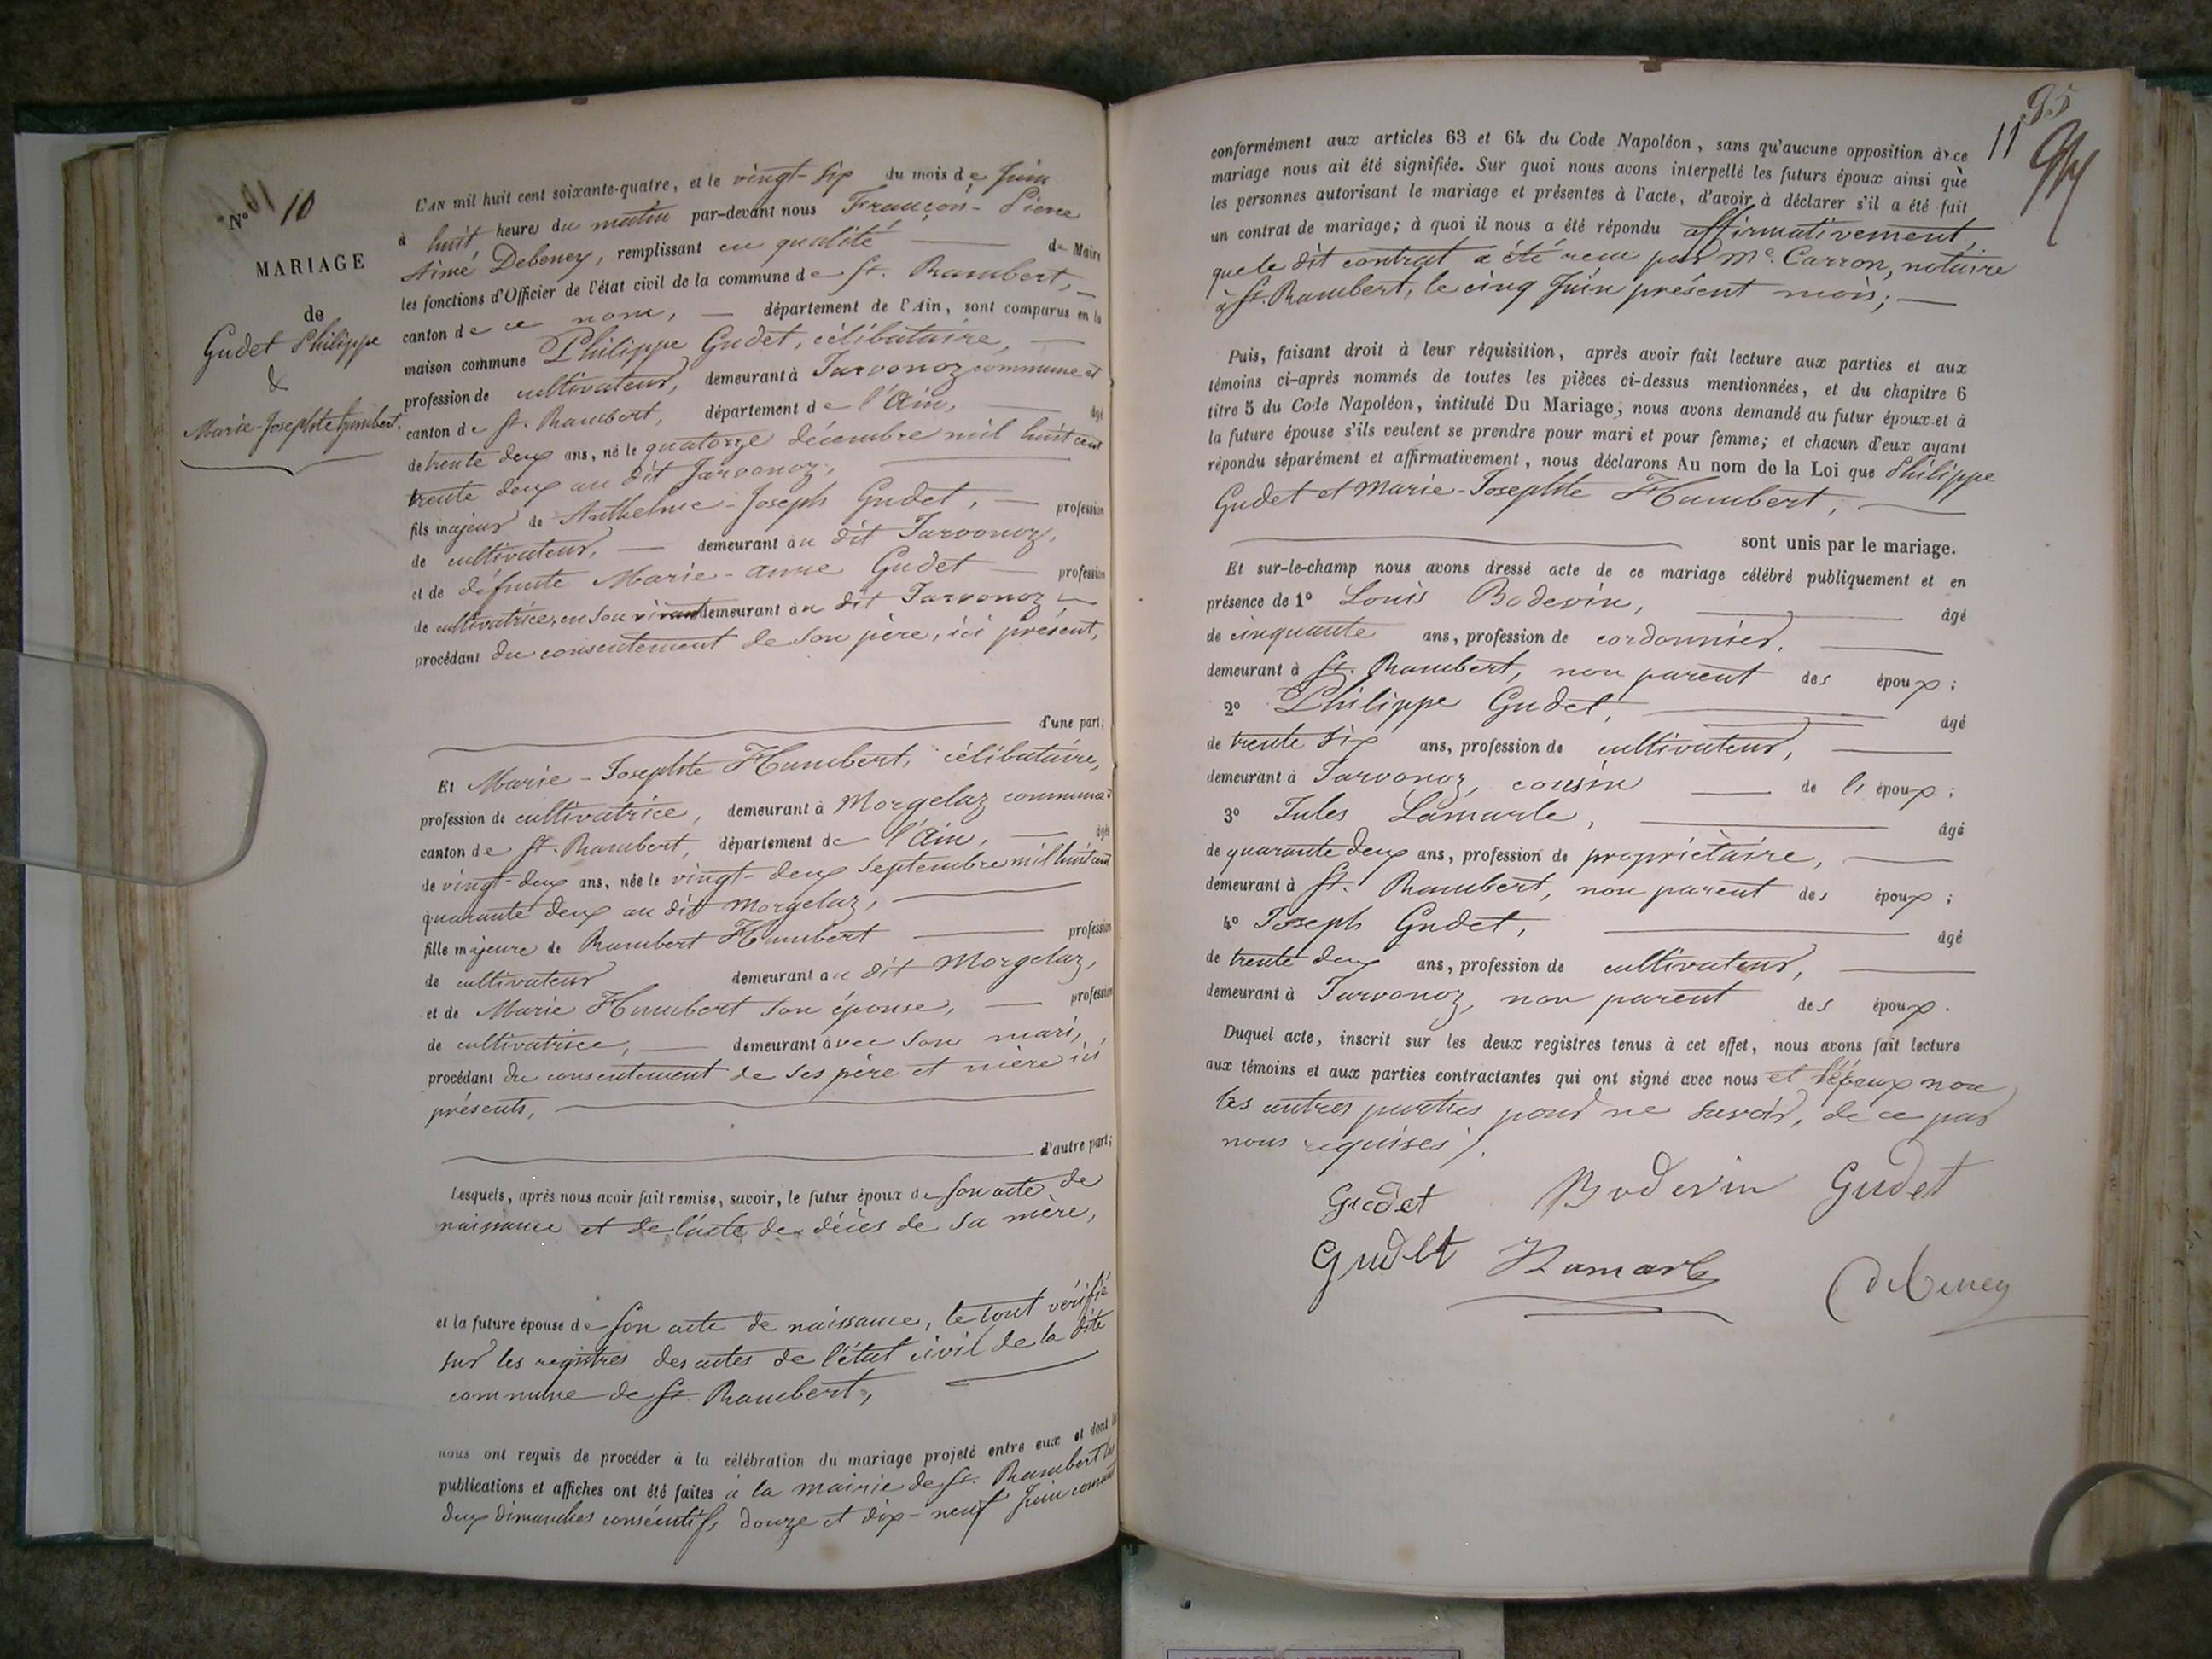 N° 10
MARIAGE
de
Gudet Philippe
&
Marie-Josephte Humbert.
L'AN mil huit cent soixante-quatre, et le vingt-six du mois de Juin
à huit heure du matin par-devant nous François-Pierre
Aimé Debeney, remplissant en qualité de Maire
les fonctions d'Officier de l'état civil de la commune de St. Rambert,
canton de ce nom, département de l'Ain, sont comparus en la
maison commune Philippe Gudet, célibataire,
profession de cultivateur, demeurant à Javonoz commune et
canton de St. Rambert, département de l'Ain, âgé
de trente deux ans, né le quatorze décembre mil huit cent
trente deux au dit Javonoz,
fils majeur de Anthelme-Joseph Gudet, profession
de cultivateur, demeurant au dit Javonoz,
et de défunte Marie-anne Gudet profession
de cultivatrice, en son vivant demeurant au dit Javonoz,
procédant du consentement de son père, ici présent,
d'une part;
Et Marie-Josephte Humbert, célibataire,
profession de cultivatrice, demeurant à Morgelaz commune et
canton de St. Rambert, département de l'Ain, âgée
de vingt-deux ans, née le vingt-deux Septembre mil huit cent
quarante deux au dit Morgelaz,
fille majeure de Rambert Humbert profession
de cultivateur demeurant au dit Morgelaz,
et de Marie Humbert son épouse, profession
de cultivatrice, demeurant avec son mari,
procédant du consentement de ses père et mère ici
présents,
d'autre part;
Lesquels, après nous avoir fait remise, savoir, le futur époux de son acte de
naissance et de l'acte de décès de sa mère,
et la future épouse de son acte de naissance, le tout vérifié
sur les registres des actes de l'état civil de la dite
commune de St. Rambert,
nous ont requis de procéder à la célébration du mariage projeté entre eux et dont les
publications et affiches ont été faites à la mairie de St. Rambert les
deux dimanches consécutifs, douze et dix-neuf Juin courant
95
11
conformément aux articles 63 et 64 du Code Napoléon, sans qu'aucune opposition à ce
mariage nous ait été signifiée. Sur quoi nous avons interpellé les futurs époux ainsi que
les personnes autorisant le mariage et présentes à l'acte, d'avoir à déclarer s'il a été fait
un contrat de mariage; à quoi il nous a été répondu affirmativement,
que le dit contrat a été reçu par Me. Carron, notaire
à St. Rambert, le cinq Juin présent mois;
Puis, faisant droit à leur réquisition, après avoir fait lecture aux parties et aux
témoins ci-après nommés de toutes les pièces ci-dessus mentionnées, et du chapitre 6
titre 5 du Code Napoléon, intitulé Du Mariage, nous avons demandé au futur époux et à
la future épouse s'ils veulent se prendre pour mari et pour femme; et chacun d'eux ayant
répondu séparément et affirmativement, nous déclarons Au nom de la Loi que Philippe
Gudet et Marie-Josephte Humbert,
sont unis par le mariage.
Et sur-le-champ nous avons dressé acte de ce mariage célébré publiquement et en
présence de 1° Louis Bodevin, âgé
de cinquante ans, profession de cordonnier,
demeurant à St. Rambert, non parent des époux;
2° Philippe Gudet, âgé
de trente six ans, profession de cultivateur,
demeurant à Javonoz, cousin de l' époux;
3° Jules Lamarle, âgé
de quarante deux ans, profession de propriétaire,
demeurant à St. Rambert, non parent des époux;
4° Joseph Gudet, âgé
de trente deux ans, profession de cultivateur,
demeurant à Javonoz, non parent des époux.
Duquel acte, inscrit sur les deux registres tenus à cet effet, nous avons fait lecture
aux témoins et aux parties contractantes qui ont signé avec nous et l'époux non
les autres parties pour ne savoir, de ce par
nous requises.
Gudet Bodevin Gudet
Gudet Lamarle Debeney